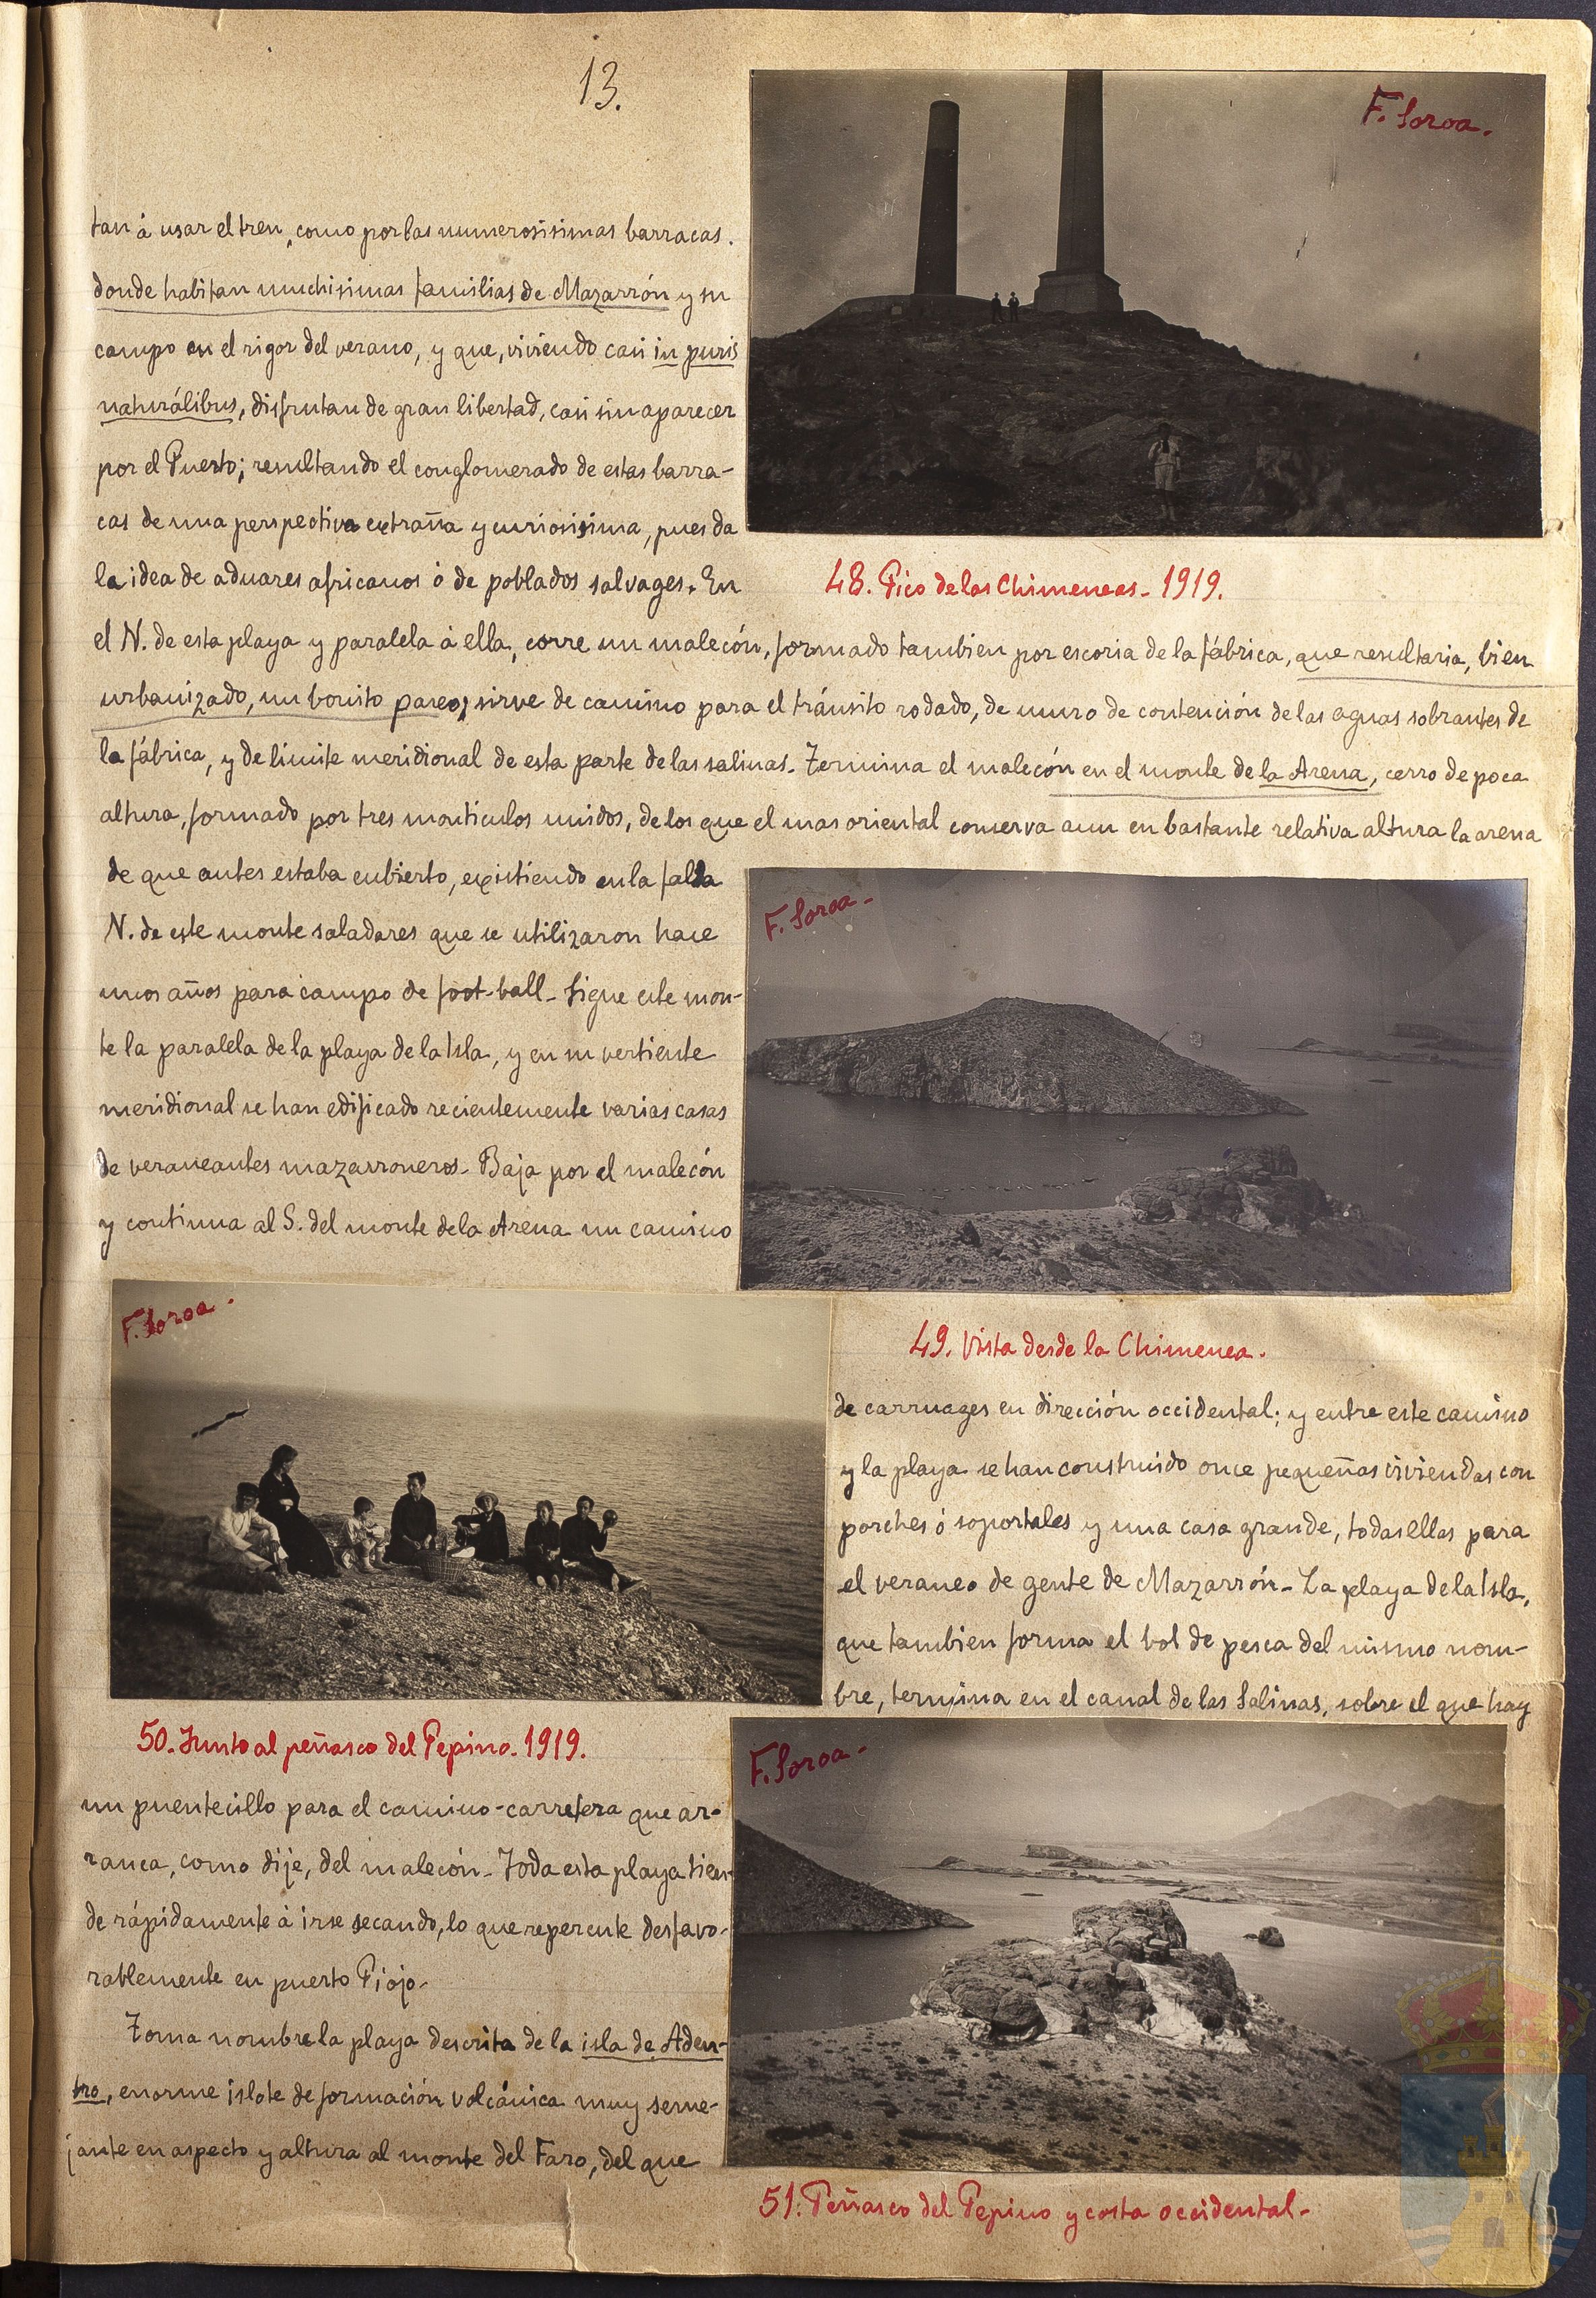 13.
F. Soroa.
tan á usar el tren, como por las numerosisimas barracas.
donde habitan muchisimas familias de Mazarrón y su
campo en el rigor del verano, y que, viviendo casi in puris
naturálibus, disfrutan de gran libertad, casi sin aparecer
por el Puerto; resultando el conglomerado de estas barra-
cas de una perspectiva extraña y curiosisima, pues da
la idea de aduares africanos ó de poblados salvages. En
48. Pico de las Chimeneas - 1919.
el N. de esta playa y paralela á ella, corre un malecón, formado tambien por escoria de la fábrica, que resultaria, bien
urbanizado, un bonito paseo; sirve de camino para el tránsito rodado, de muro de contención de las aguas sobrantes de
la fábrica, y de límite meridional de esta parte de las salinas. Termina el malecón en el monte de la Arena, cerro de poca
altura, formado por tres montículos unidos, de los que el mas oriental conserva aun en bastante relativa altura la arena
de que antes estaba cubierto, existiendo en la falda
N. de este monte saladares que se utilizaron hace
unos años para campo de foot-ball - Sigue este mon-
te la paralela de la playa de la Isla, y en su vertiente
meridional se han edificado recientemente varias casas
de veraneantes mazarroneros - Baja por el malecón
y continua al S. del monte de la Arena un camino
F. Soroa -
49. Vista desde la Chimenea.
de carruages en dirección occidental; y entre este camino
y la playa se han construido once pequeñas viviendas con
porches ó soportales y una casa grande, todas ellas para
el veraneo de gente de Mazarrón - La playa de la Isla,
que tambien forma el bol de pesca del mismo nom-
bre, termina en el canal de las Salinas, sobre el que hay
F. Soroa -
50. Junto al peñasco del Pepino. 1919.
un puentecillo para el camino-carretera que ar-
ranca, como dije, del malecón - Toda esta playa tien-
de rápidamente á irse secando, lo que repercute desfavo-
rablemente en puerto Piojo -
Toma nombre la playa descrita de la isla de Aden-
tro, enorme islote de formación volcánica muy seme-
jante en aspecto y altura al monte del Faro, del que
F. Soroa -
51. Peñasco del Pepino y costa occidental -